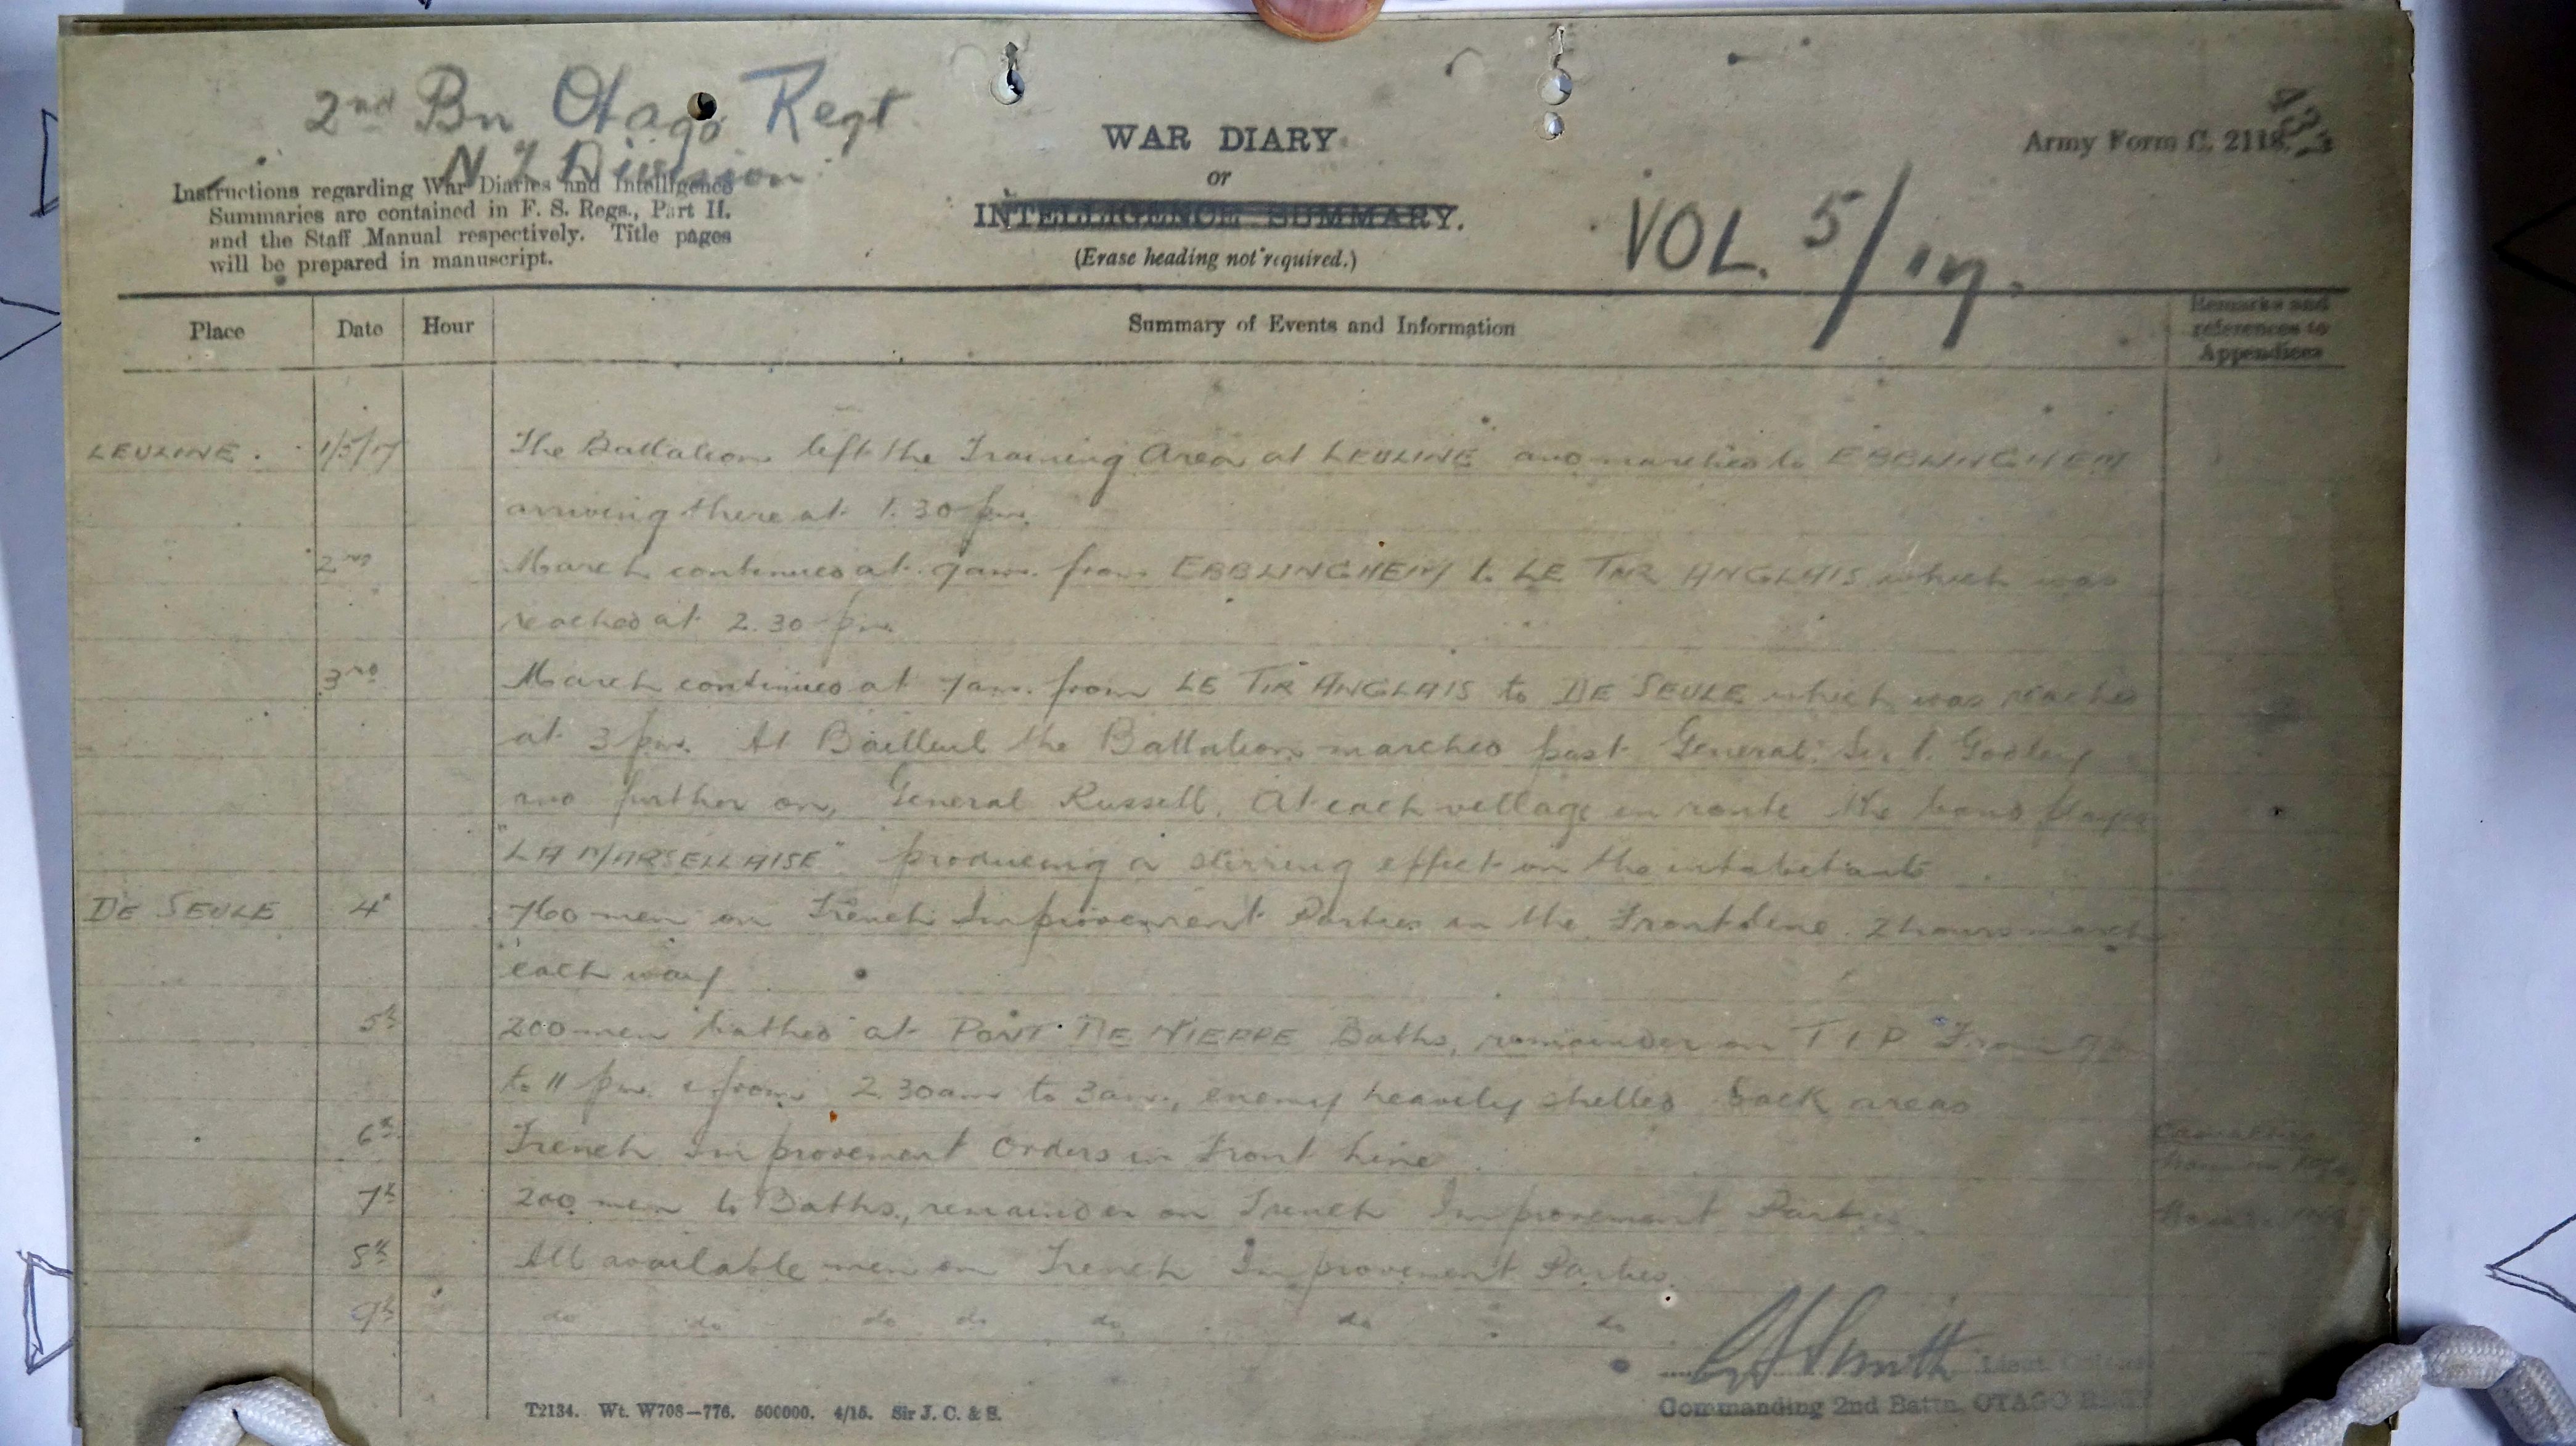 2nd Bn Otago Regt
N Z Division
WAR DIARY
or
INTELLIGENCE SUMMARY.
(Erase heading not required.)
Army Form C. 2118.
Instructions regarding War Diaries and Intelligence
Summaries are contained in F. S. Regs., Part II.
and the Staff Manual respectively. Title pages
will be prepared in manuscript.
VOL. 5/17.
Place Date Hour Summary of Events and Information Remarks and
references to
Appendices
LEULINE. 1/5/17 The Battalion left the Training Area at LEULINE and marched to EBBLINGHEM
arriving there at 1.30 pm.
2nd March continued at 9am. from EBBLINGHEM to LE TIR ANGLAIS which was
reached at 2.30 pm
3rd March continued at 7am. from LE TIR ANGLAIS to DE SEULE which was reached
at 3 pm. At Bailleul the Battalion marched past General Sir A. Godley
and further on, General Russell. At each village en route the band played
"LA MARSELLAISE" producing a stirring effect on the inhabitants
DE SEULE 4th 760 men on Trench Improvement Parties in the Front Line. 2 hours march
each way
5th 200 men bathed at PONT DE NIEPPE Baths, remainder on T I P From 9 pm
to 11 pm. & from 2.30am to 3am., enemy heavily shelled back areas
6th Trench Improvement Orders in Front Line. Casualties
7th 200 men to Baths, remainder on Trench Improvement Parties
8th All available men on Trench Improvement Parties.
9th do do do do do do do
Smith Lieut. Colonel
Commanding 2nd Battn. OTAGO REGT
T2134. Wt. W708—776. 500000. 4/15. Sir J. C. & S.